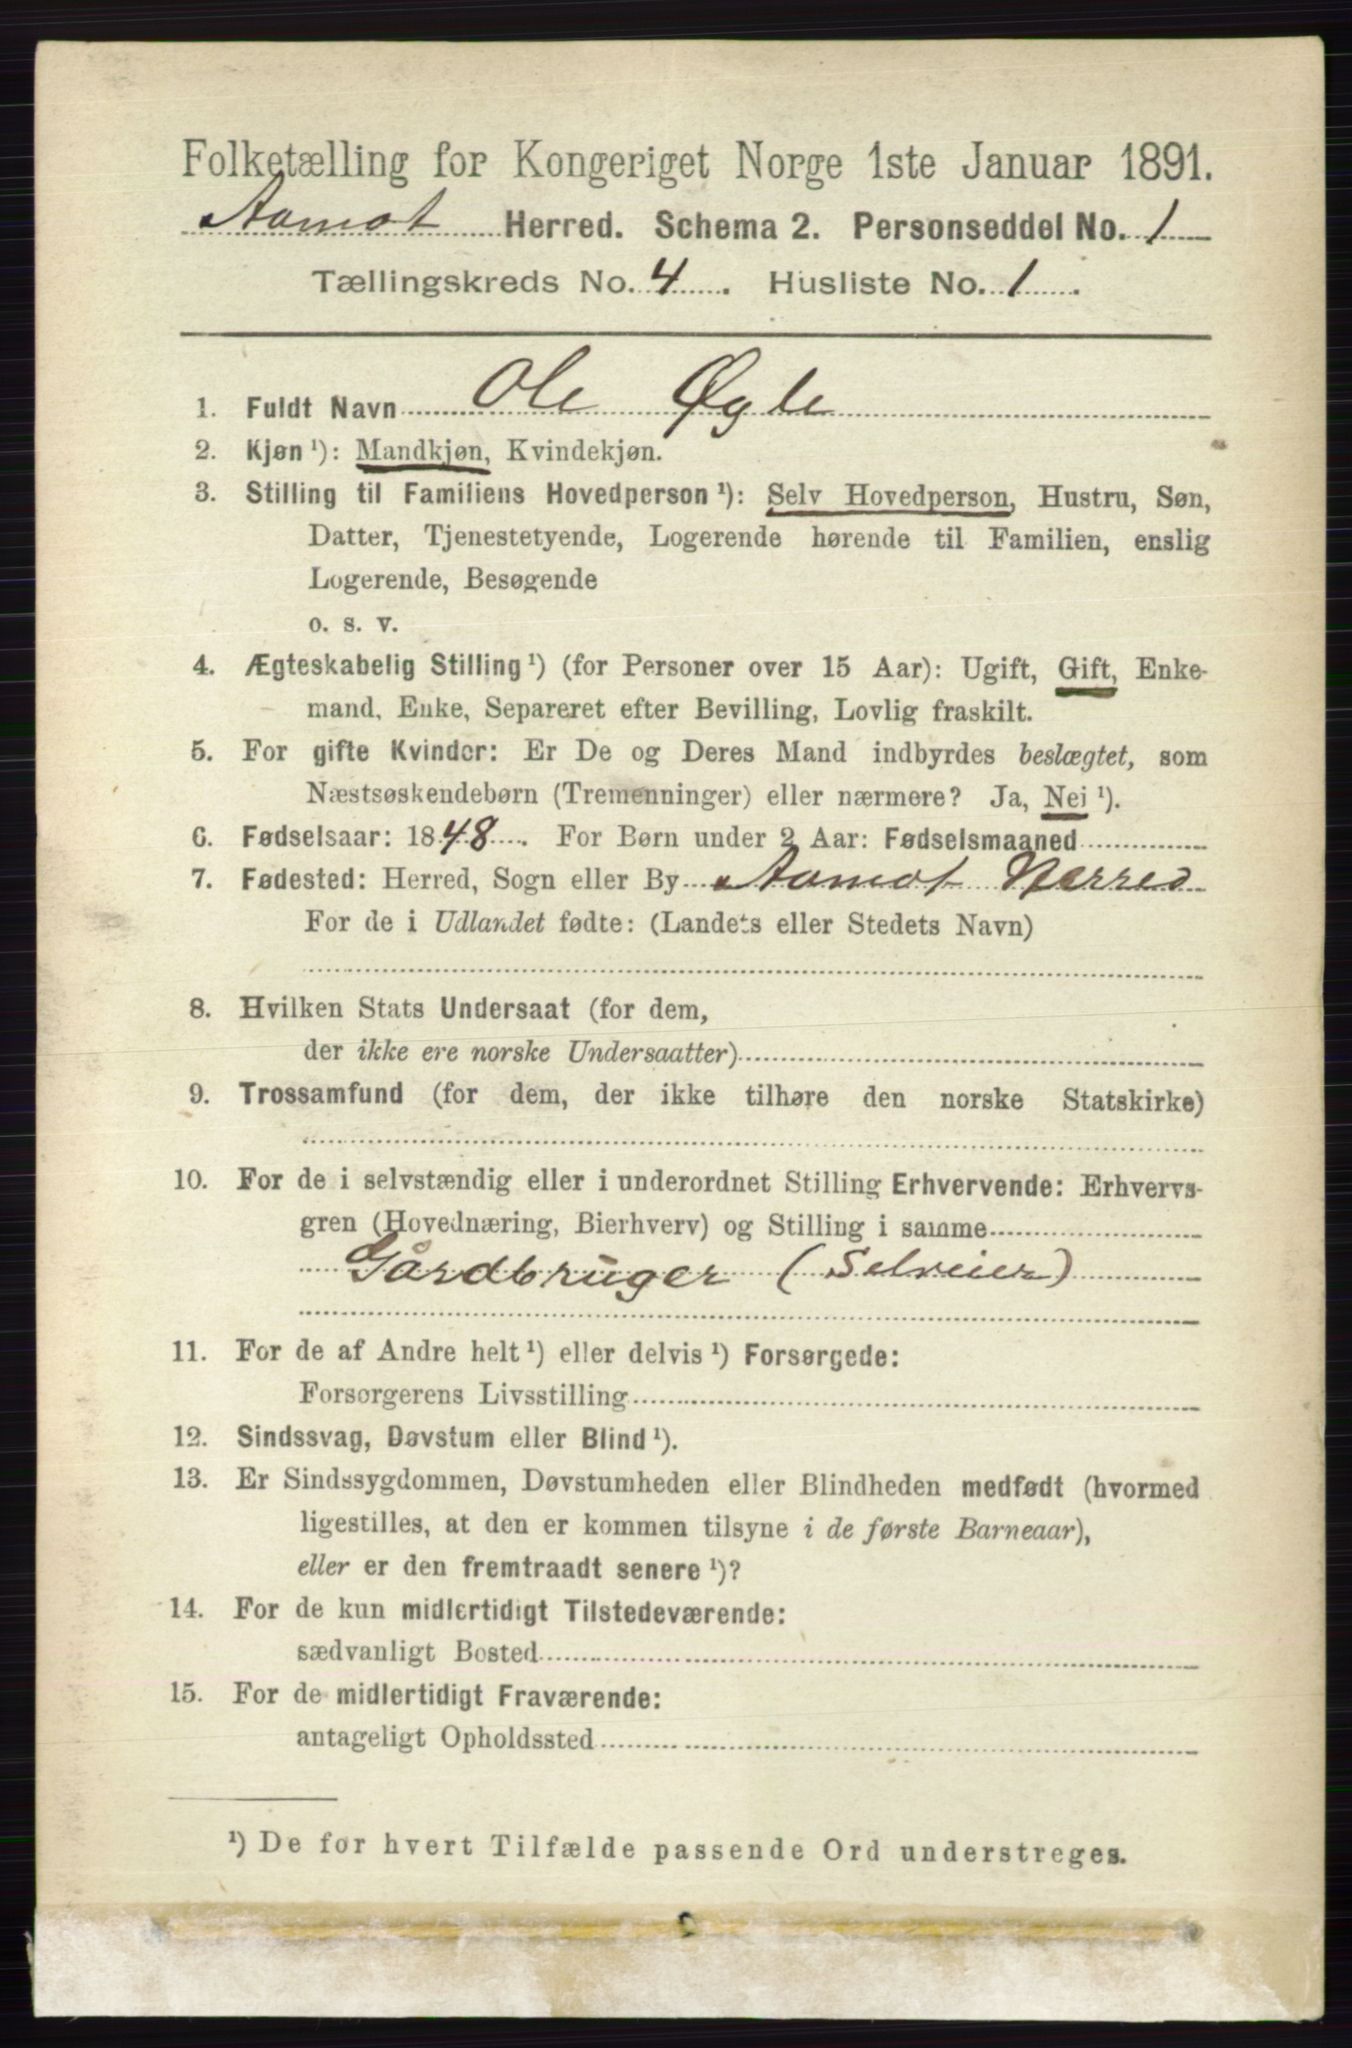 Folketælling for Kongeriget Norge 1ste Januar 1891.
Aamot Herred. Schema 2. Personseddel No. 1
Tællingskreds No. 4. Husliste No. 1.
1. Fuldt Navn Ole Øgle
2. Kjøn ¹): Mandkjøn, Kvindekjøn.
3. Stilling til Familiens Hovedperson ¹): Selv Hovedperson, Hustru, Søn,
Datter, Tjenestetyende, Logerende hørende til Familien, enslig
Logerende, Besøgende
o. s. v.
4. Ægteskabelig Stilling ¹) (for Personer over 15 Aar): Ugift, Gift, Enke-
mand, Enke, Separeret efter Bevilling, Lovlig fraskilt.
5. For gifte Kvinder: Er De og Deres Mand indbyrdes beslægtet, som
Næstsøskendebørn (Tremenninger) eller nærmere? Ja, Nei ¹).
6. Fødselsaar: 1848. For Børn under 2 Aar: Fødselsmaaned
7. Fødested: Herred, Sogn eller By Aamot Herred
For de i Udlandet fødte: (Landets eller Stedets Navn)
8. Hvilken Stats Undersaat (for dem,
der ikke ere norske Undersaatter)
9. Trossamfund (for dem, der ikke tilhøre den norske Statskirke)
10. For de i selvstændig eller i underordnet Stilling Erhvervende: Erhvervs-
gren (Hovednæring, Bierhverv) og Stilling i samme
Gårdbruger (Selveier)
11. For de af Andre helt ¹) eller delvis ¹) Forsørgede:
Forsørgerens Livsstilling
12. Sindssvag, Døvstum eller Blind ¹).
13. Er Sindssygdommen, Døvstumheden eller Blindheden medfødt (hvormed
ligestilles, at den er kommen tilsyne i de første Barneaar),
eller er den fremtraadt senere ¹)?
14. For de kun midlertidigt Tilstedeværende:
sædvanligt Bosted
15. For de midlertidigt Fraværende:
antageligt Opholdssted
¹) De for hvert Tilfælde passende Ord understreges.